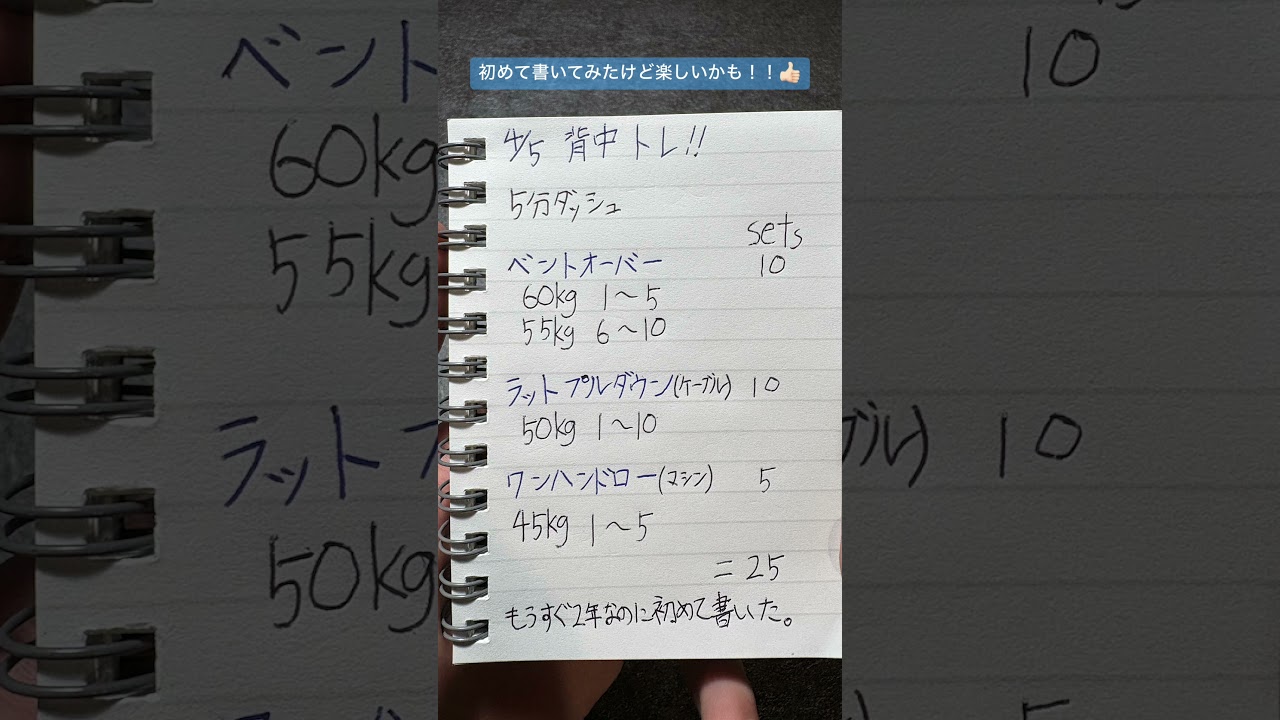 初めて書いてみたけど楽しいかも！！👍🏻
4/5 背中トレ!!
5分ダッシュ
sets
ベントオーバー 10
60kg 1〜5
55kg 6〜10
ラットプルダウン(ケーブル) 10
50kg 1〜10
ワンハンドロー(マシン) 5
45kg 1〜5
= 25
もうすぐ2年なのに初めて書いた。
ベント
60kg
55kg
ラット
50kg
10
ブル) 10